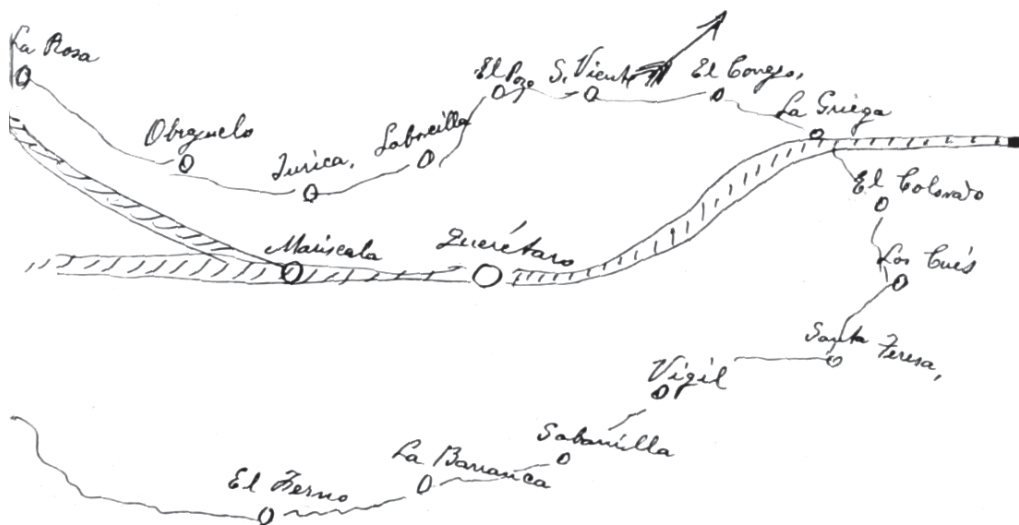 La Rosa
Obrajuelo
Jurica,
Laborcilla
El Pozo
S. Vicente
El Conejo,
La Griega
El Colorado
Mariscala
Querétaro
Los Cués
Santa Teresa,
Vigil
Sabanilla
La Barranca
El Fierno